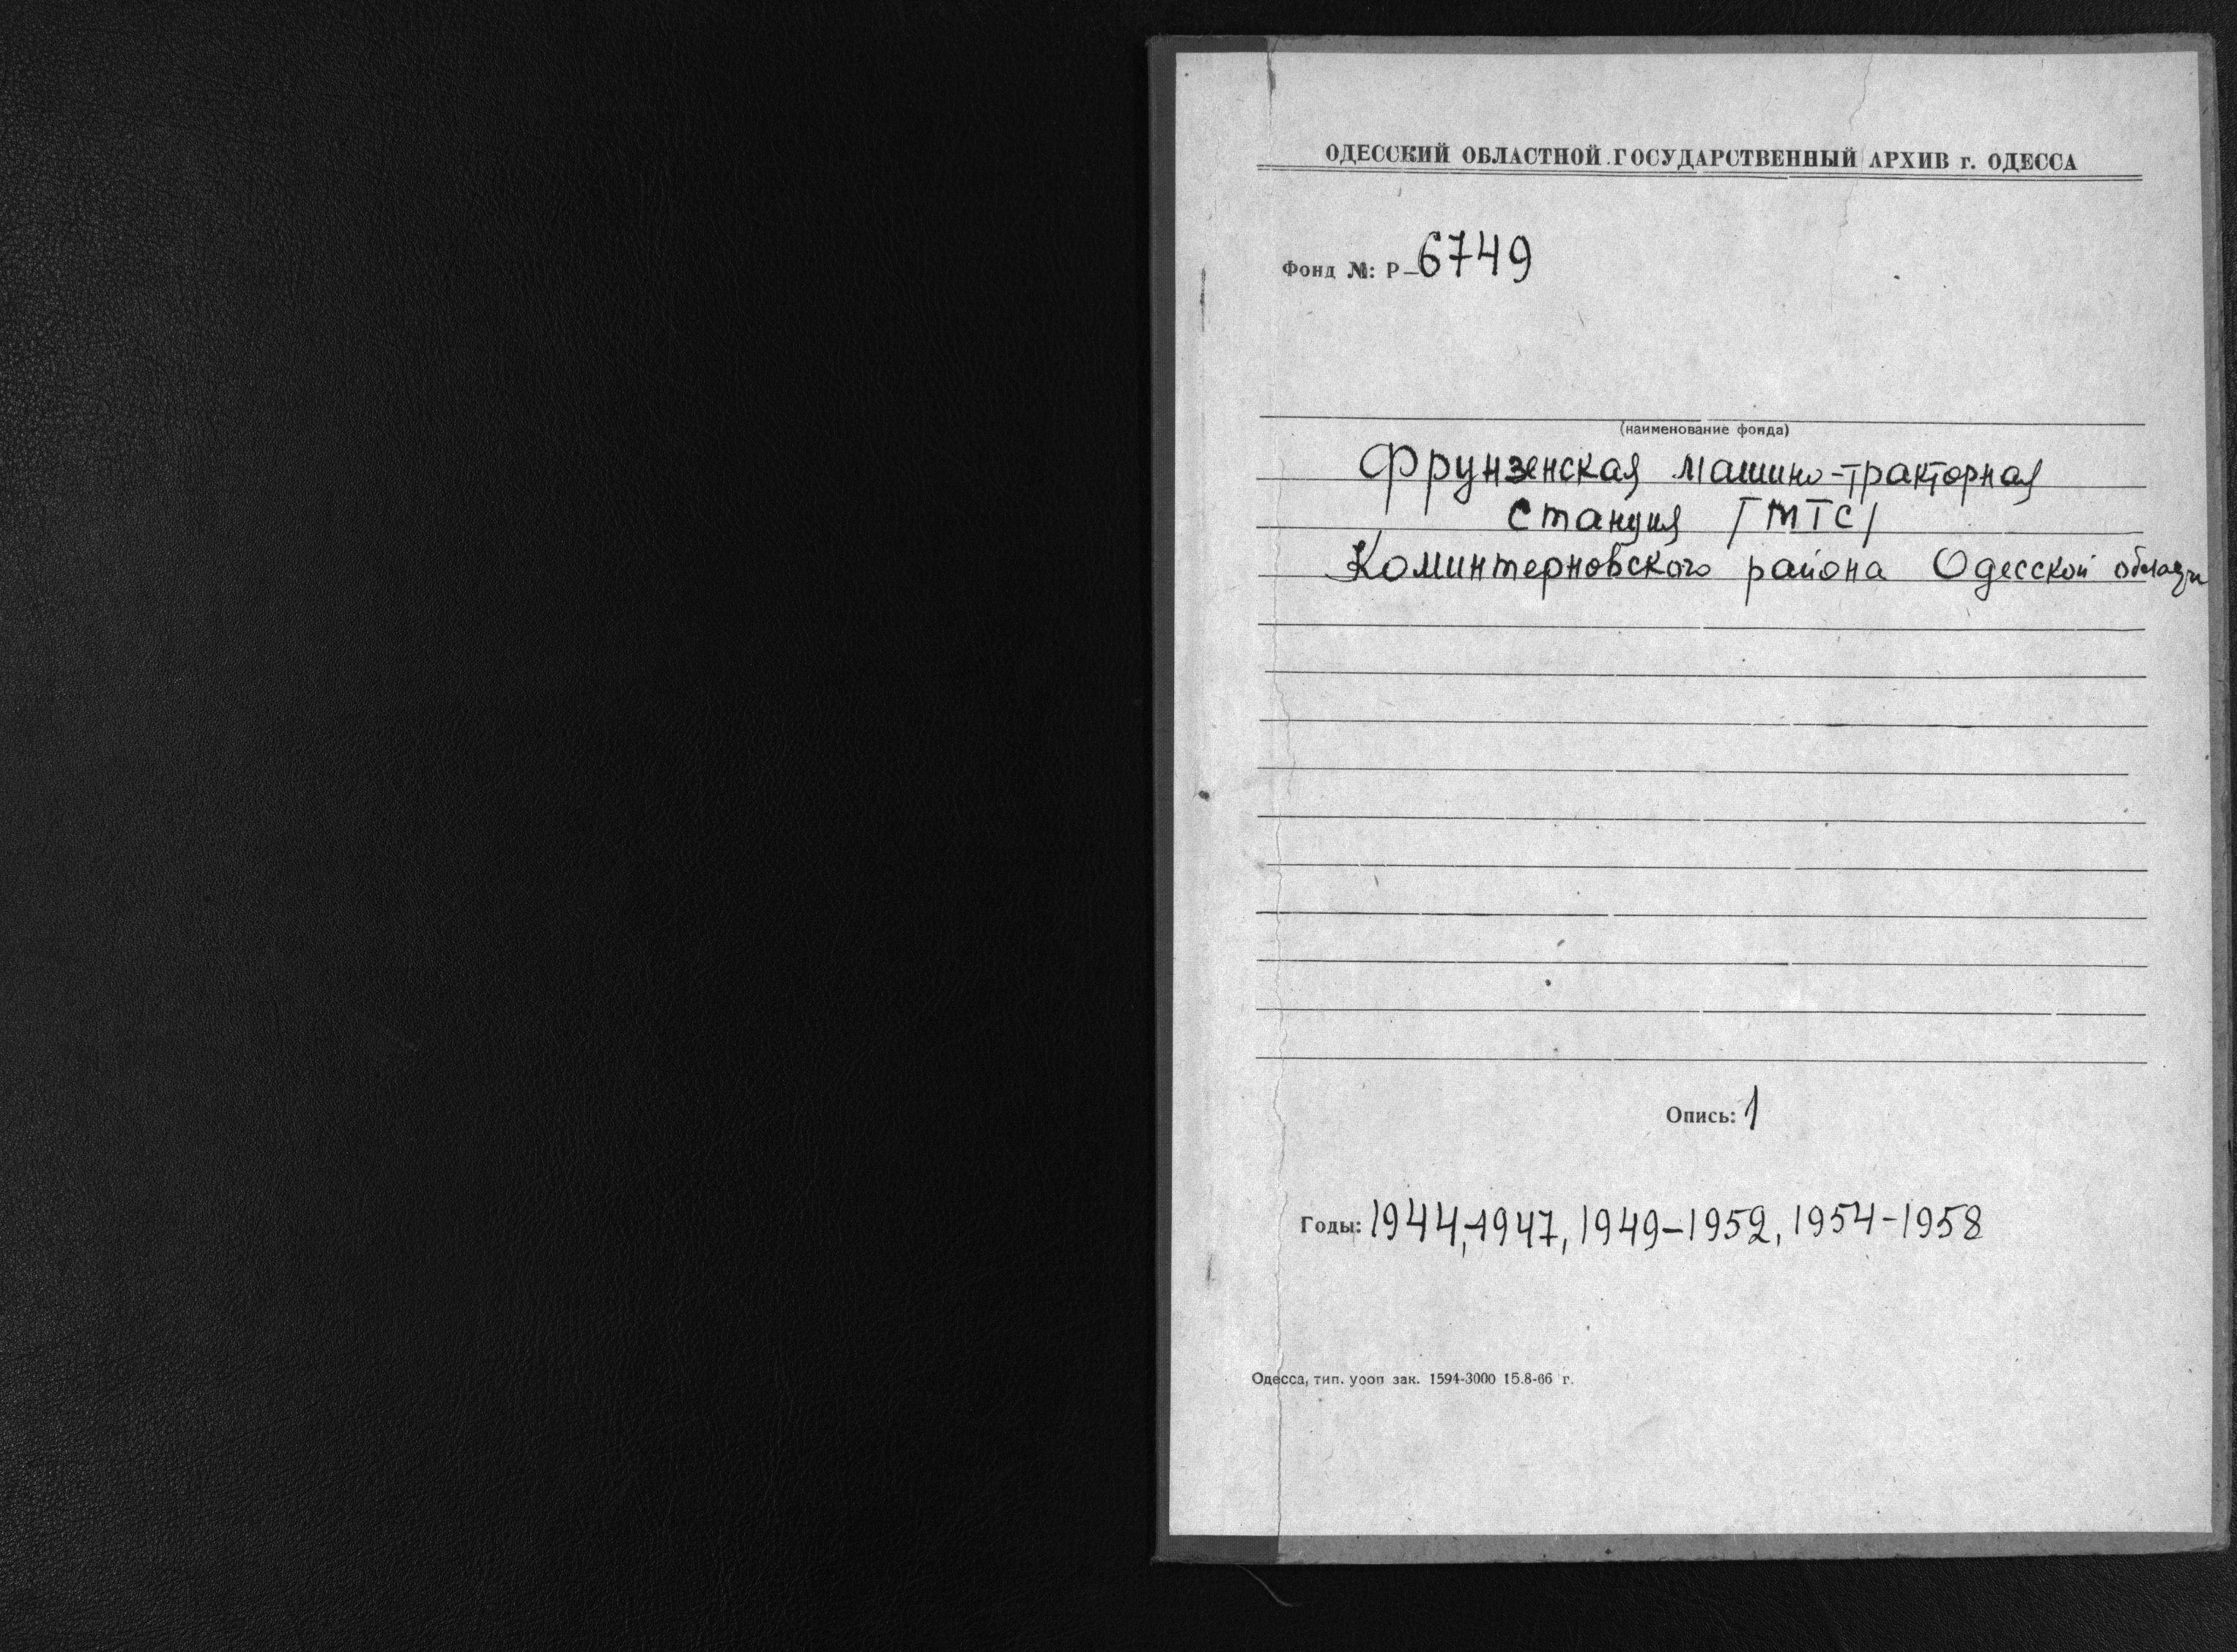 ОДЕССКИЙ ОБЛАСТНОЙ ГОСУДАРСТВЕННЫЙ АРХИВ г. ОДЕССА
Фонд №: Р—6749
(наименование фонда)
Фрунзенская машино-тракторная
станция /МТС/
Коминтерновского района Одесской области
Опись: 1
Годы: 1944,-1947, 1949-1952, 1954-1958
Одесса, тип. уооп зак. 1594-3000 15.8-66 г.